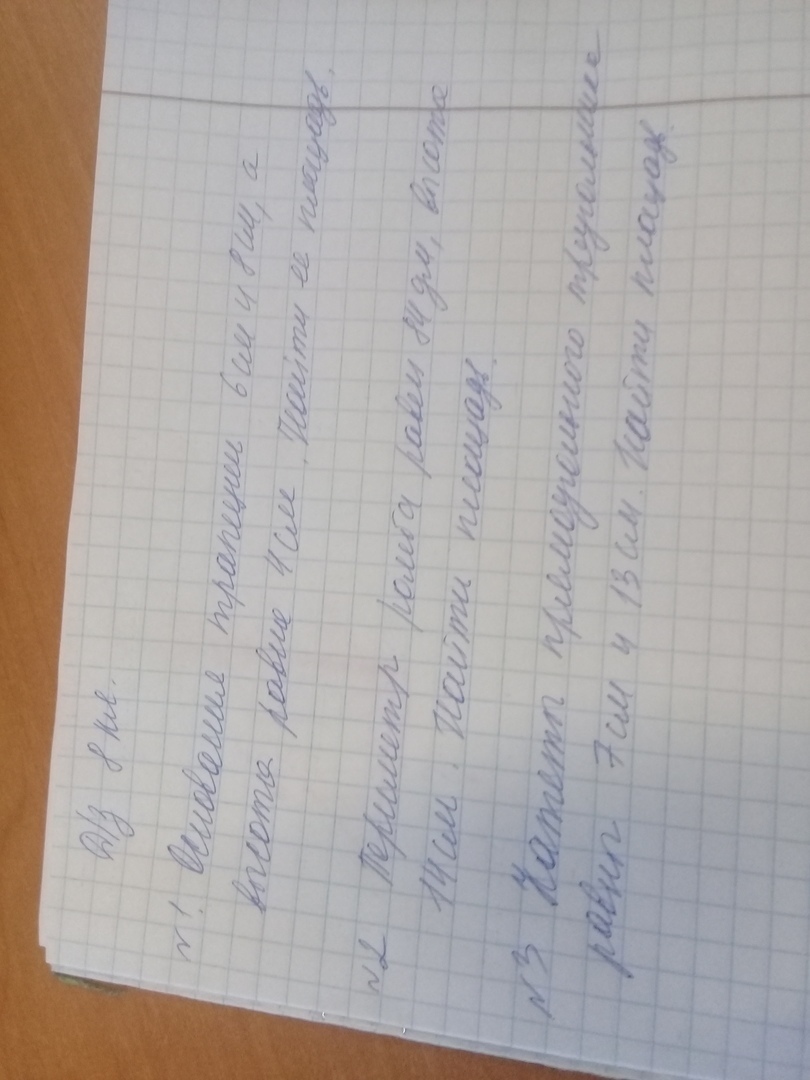 Д/З 8 кл.
№1. Основание трапеции 6 см и 8 см, а
высота равна 4 см. Найти её площадь.
№2 Периметр ромба равен 84 дм, высота
14 см. Найти площадь.
№3 Катеты прямоугольного треугольника
равны 7 см и 13 см. Найти площадь.